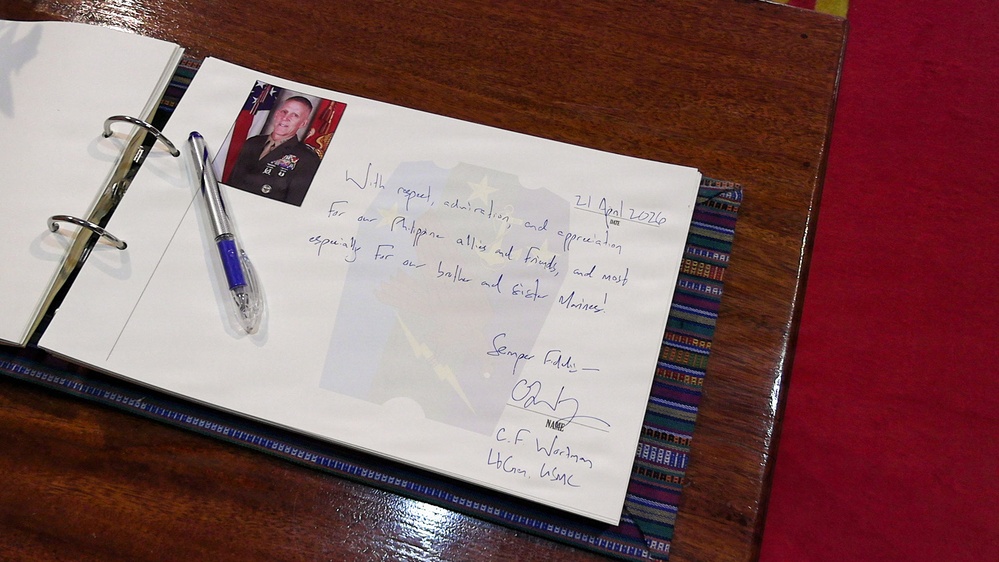 21 April 2026
DATE
With respect, admiration, and appreciation
For our Philippine allies and Friends, and most
especially For our brother and sister Marines!
Semper Fidelis —
NAME
C.F Wortman
LtGen. USMC